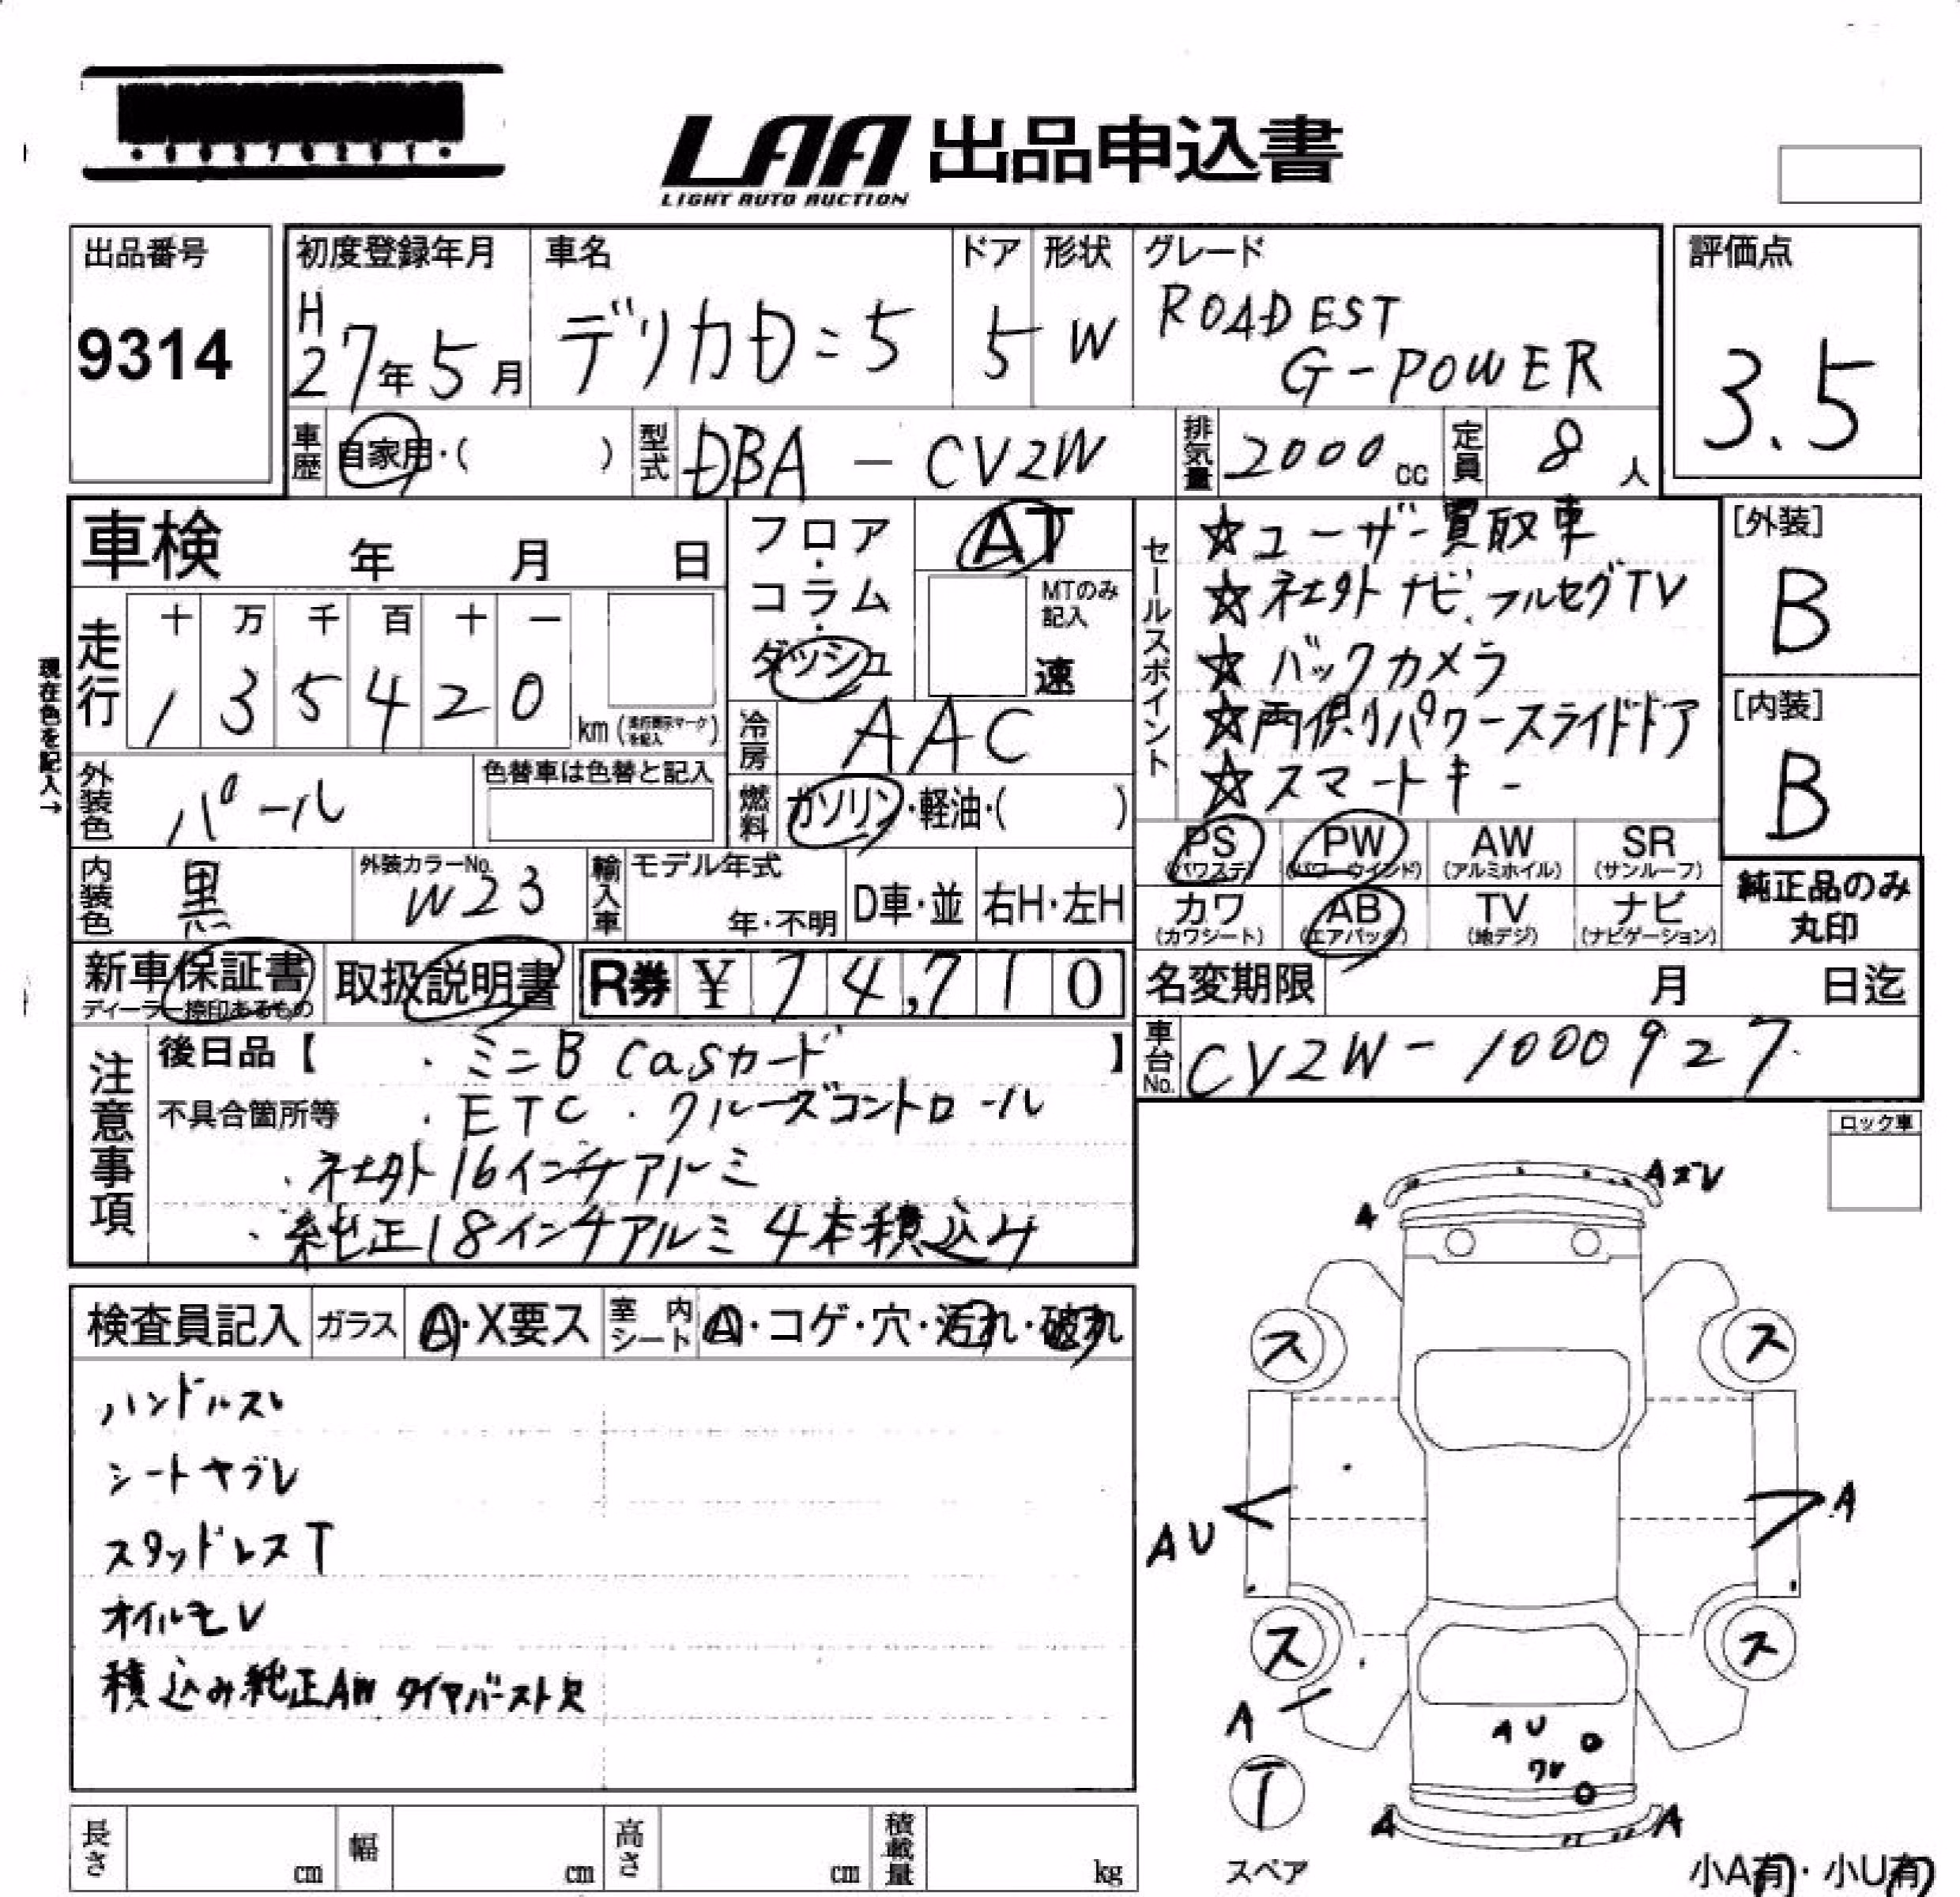 LAA 出品申込書
LIGHT AUTO AUCTION
出品番号
9314
初度登録年月
H27年5月
車名
デリカD:5
ドア
5
形状
W
グレード
ROADEST
G-POWER
評価点
3.5
車歴
自家用・( )
型式
DBA-CV2W
排気量
2000cc
定員
8人
車検 年 月 日
フロア・コラム・ダッシュ
AT
MTのみ記入
速
走行
十 万 千 百 十 一
1 3 5 4 2 0
km (走行表示マークを記入)
現在色を記入→
冷房
AAC
外装色
パール
色替車は色替と記入
燃料
ガソリン・軽油・( )
内装色
黒
外装カラーNo.
W23
輸入車
モデル年式
年・不明
D車・並
右H・左H
セールスポイント
☆ユーザー買取車
☆社外ナビ、フルセグTV
☆バックカメラ
☆両側パワースライドドア
☆スマートキー
[外装]
B
[内装]
B
PS
(パワステ)
PW
(パワーウインド)
AW
(アルミホイル)
SR
(サンルーフ)
カワ
(カワシート)
AB
(エアバック)
TV
(地デジ)
ナビ
(ナビゲーション)
純正品のみ
丸印
新車保証書
ディーラー捺印あるもの
取扱説明書
R券 ¥ 14,710
名変期限 月 日迄
車台No.
CV2W-1000927
注意事項
後日品【 ・ミニB Casカード 】
不具合箇所等 ・ETC ・クルーズコントロール
・社外16インチアルミ
・純正18インチアルミ4本積込み
ロック車
検査員記入
ガラス
A・X要ス
室内シート
A・コゲ・穴・汚れ・破れ
ハンドルスレ
シートヤブレ
スタッドレスT
オイルモレ
積込み純正AW タイヤバースト欠
Aズレ
A
ス
ス
AU
A
ス
ス
A
AU
ワレ
T
スペア
A
A
小A有・小U有
長さ cm
幅 cm
高さ cm
積載量 kg